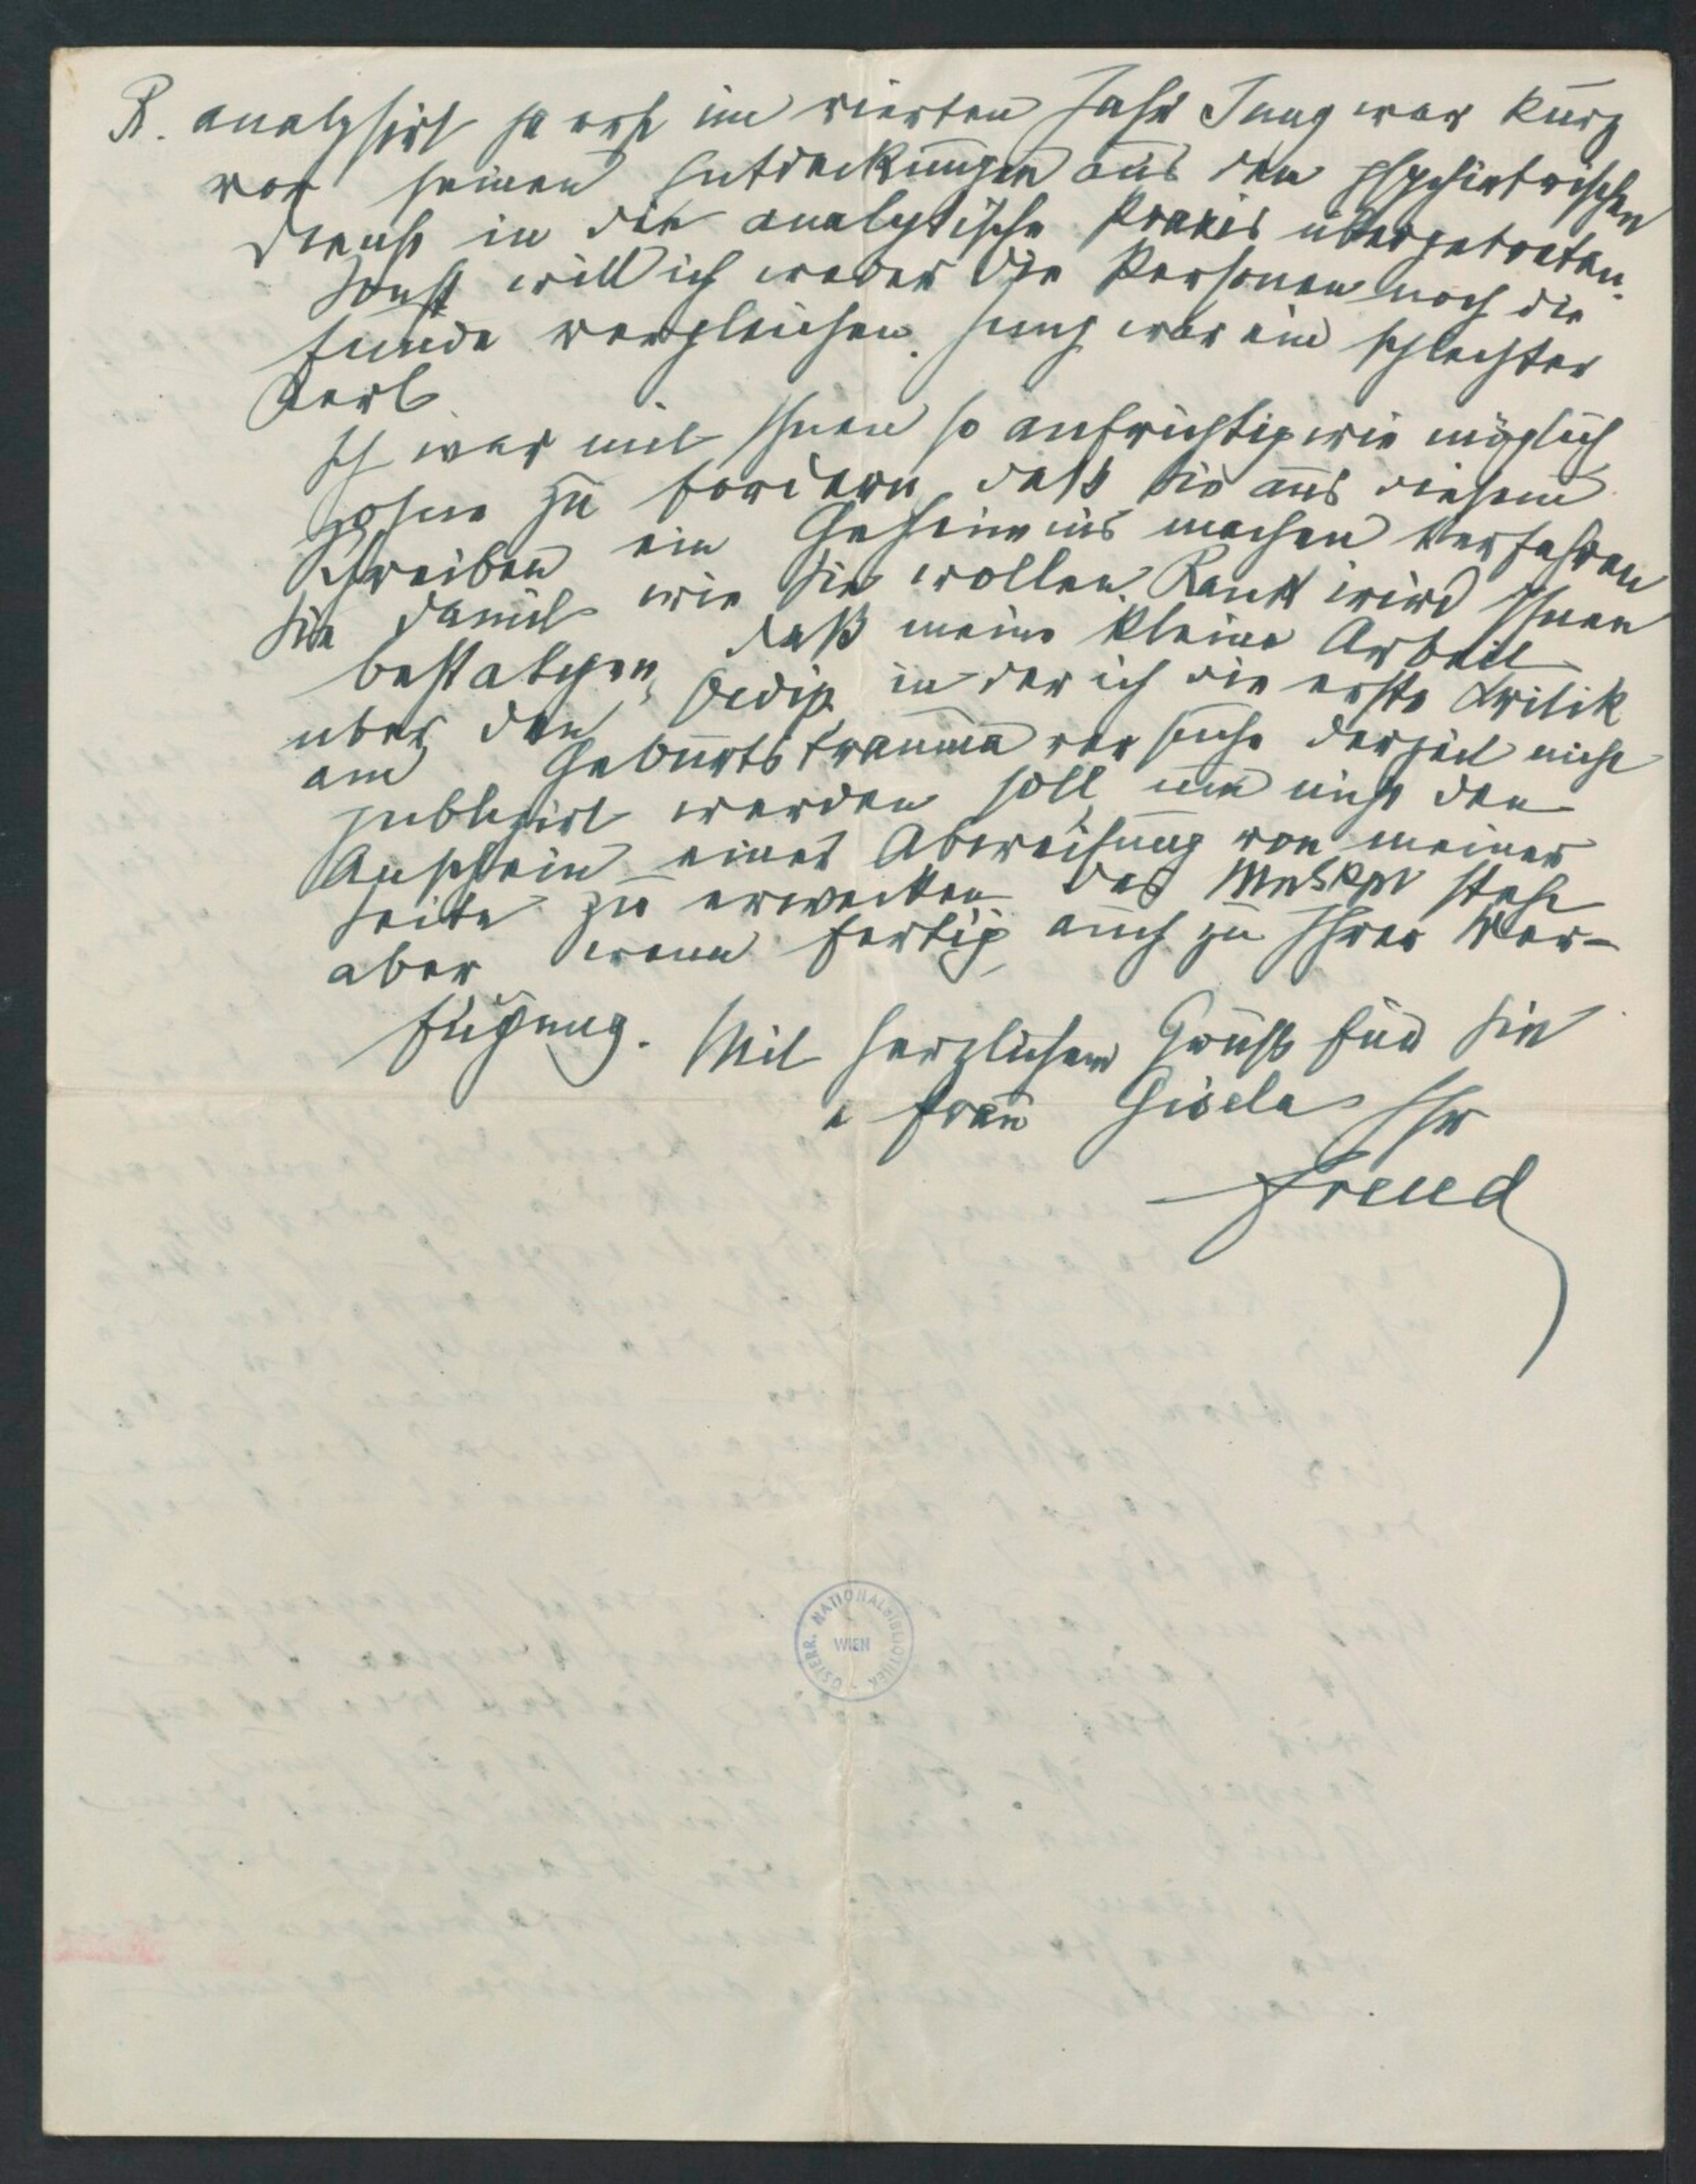 R. analysirt ja erst im vierten Jahr Jung war kurz
vor seinen Entdeckungen aus dem psychiatrischen
Dienst in die analytische Praxis übergetreten.
Sonst will ich weder die Personen noch die
Funde vergleichen. Jung war ein schlechter
Kerl.
Ich war mit Ihnen so aufrichtig wie möglich
ohne zu fordern, daß Sie aus diesem
Schreiben ein Geheimnis machen Verfahren
Sie damit wie Sie wollen. Rank wird Ihnen
bestatigen, daß meine kleine Arbeit
uber den Oedip, in der ich die erste Kritik
am Geburtstrauma versuche derzeit nicht
publizirt werden soll, um nicht den
Anschein einer Abweisung von meiner
Seite zu erwecken Das Mnskpt steht
aber wenn fertig auch zu Ihrer Ver-
fügung. Mit herzlichem Gruß für Sie
u Frau Gisela Ihr
Freud
ÖSTERR. NATIONALBIBLIOTHEK
WIEN